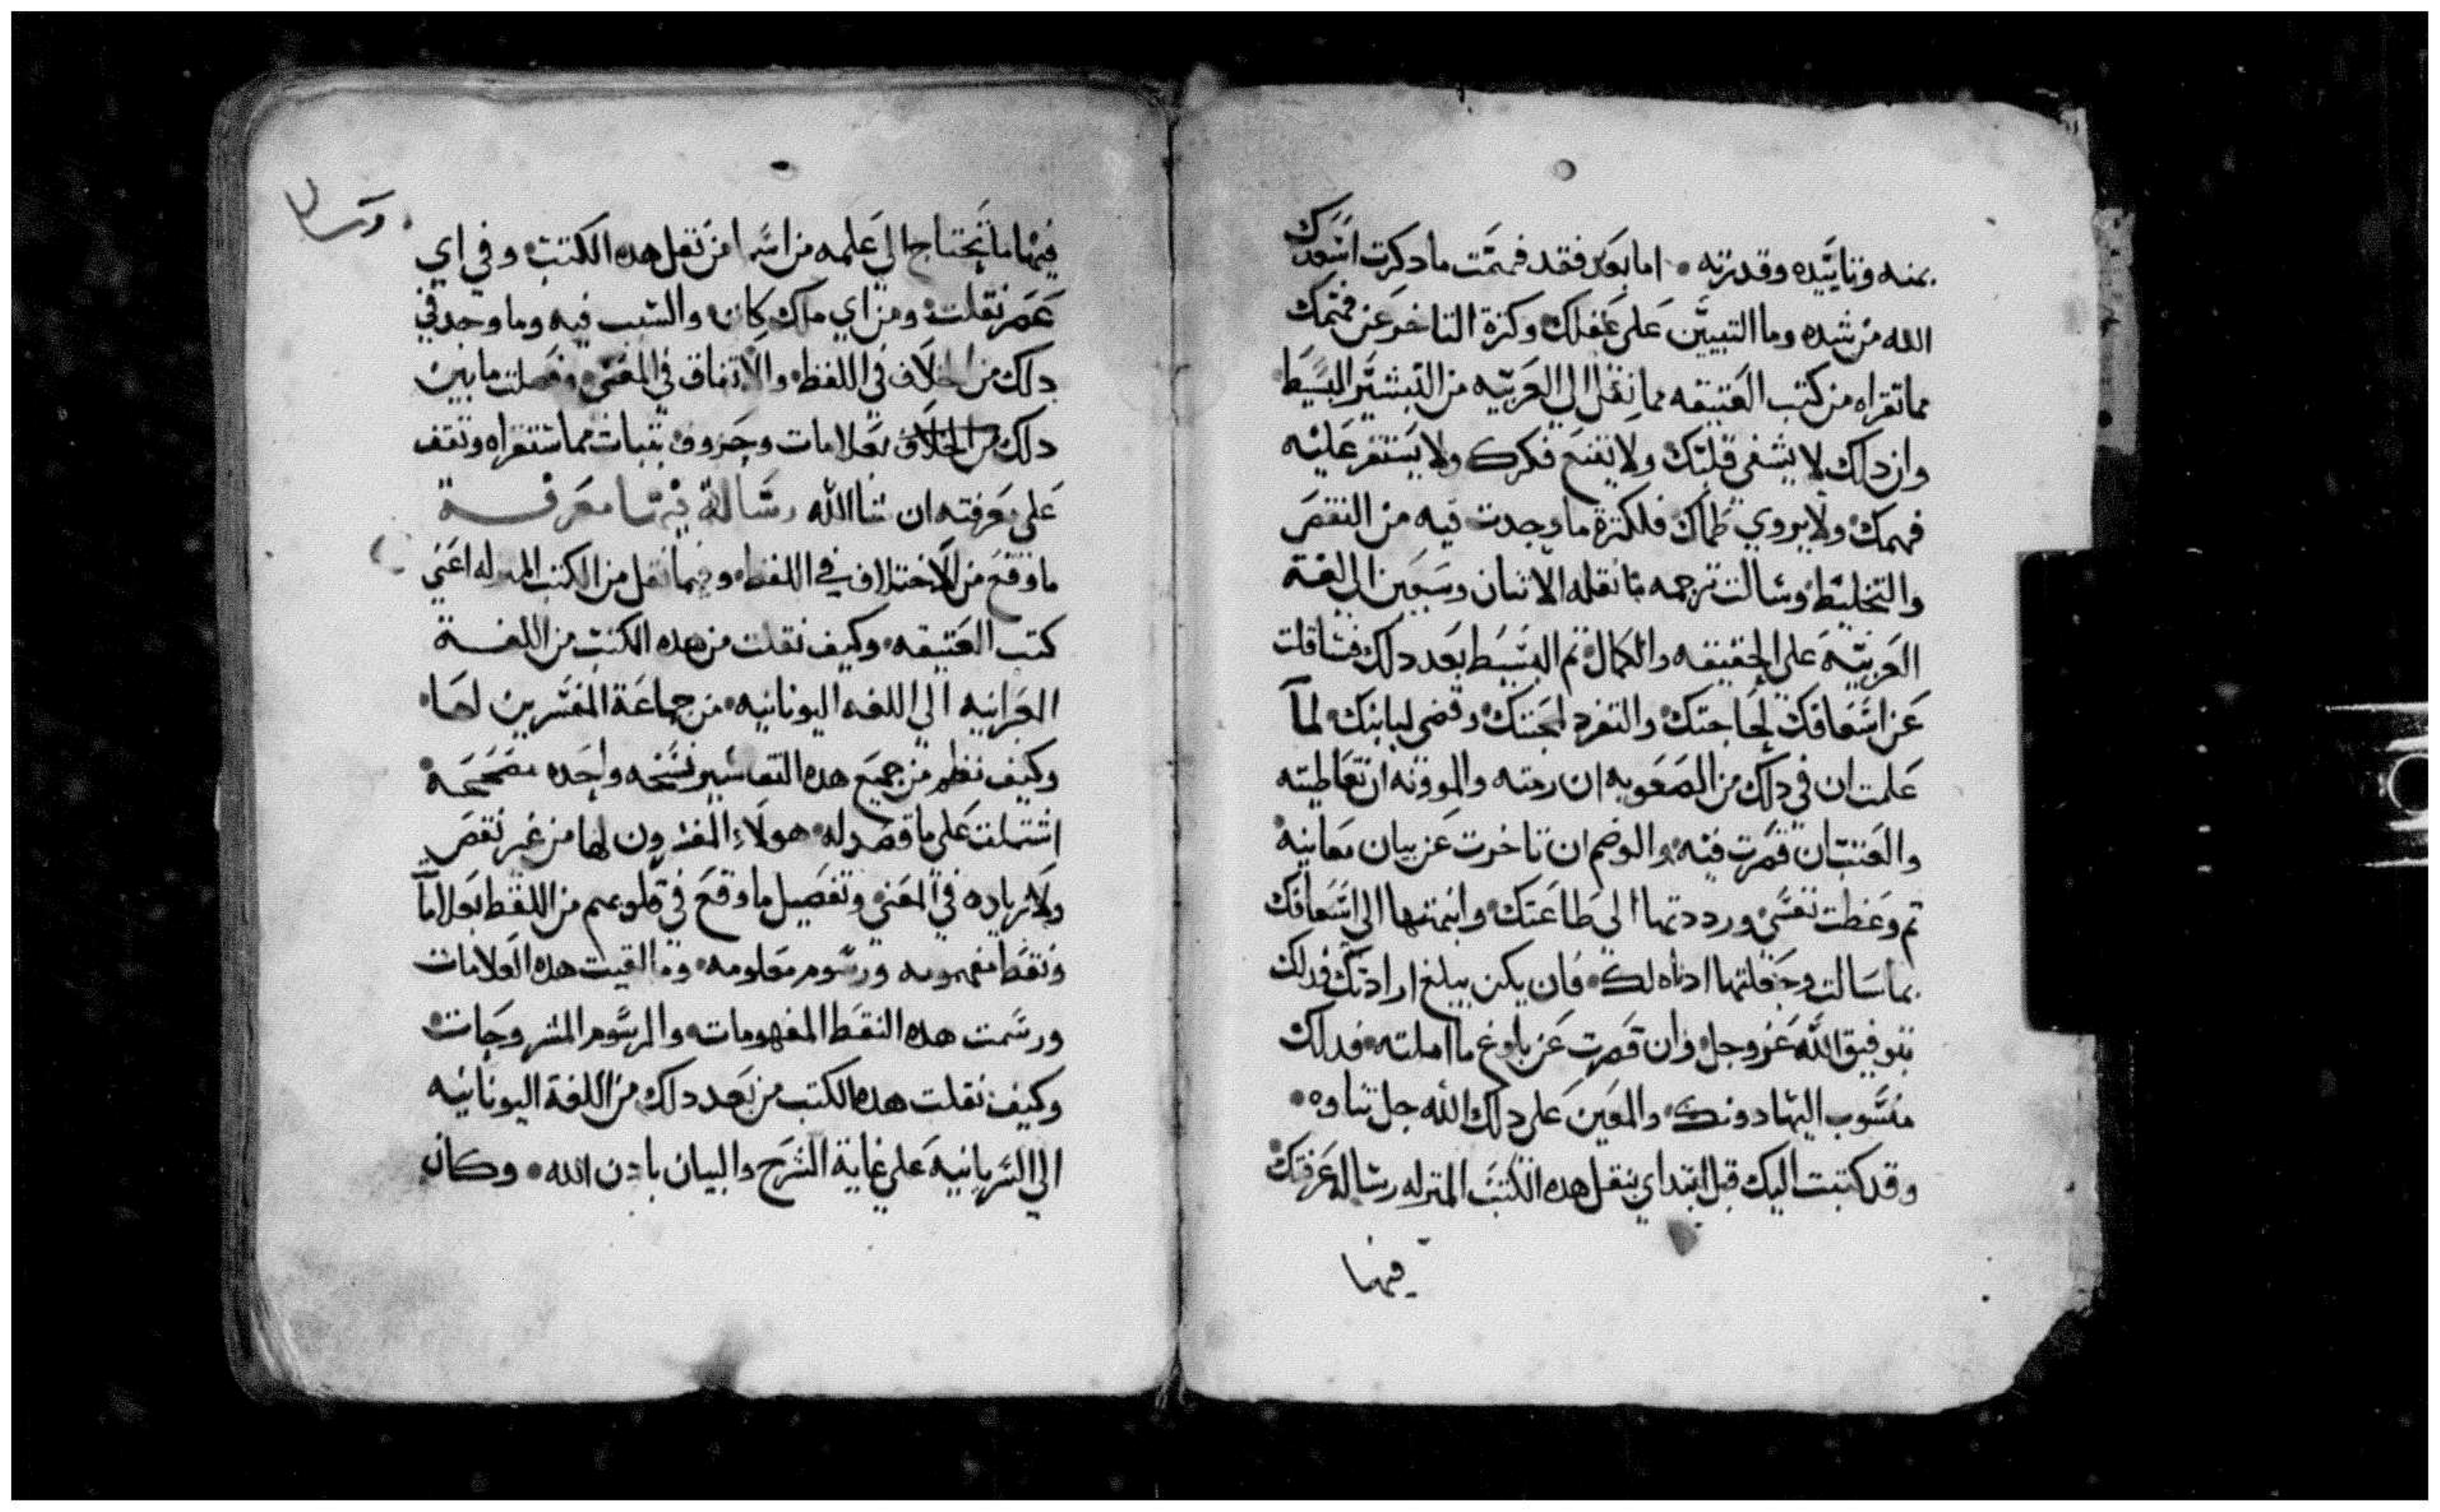 بمنه وتاييده وقدرته • اما بعد فقد فهمت ما دكرت اسعدك
الله مرشده وما التبيين على عقلك وكترة التاخر عن فهمك
مما تقراه من كتب العتيقه مما نقل الى العربيه من التبشير البسيط
وان دلك لا يشفي قلبك ولا يقنع فكرك ولا يستقر عليه
فهمك ولا يروي ظماك فلكترة ما وجدت فيه من النقص
والتخليط وسالت ترجمه ما نقله الاتنان وسبعين الى لغة
العربيه على الحقيقه والكمال تم البسيط بعد دلك فتتاقلت
عن اسعافك لحاجتك والتفرد لمحبتك وقضى لبابتك لما
علمت ان في دلك من الصعوبه ان رمته والموونه ان تعاطيته
والعتب ان قصرت فيه والوضم ان تاخرت عن بيان معانيه
تم وعظت نفسي ورددتها الى طاعتك وانهمتها الى اسعافك
بما سالت وجعلتها اداه لك • فان يكن يبلغ ارادتك فدلك
بتوفيق الله عز وجل وان قصرت عن بلوغ ما املته فدلك
منسوب اليها دونك والمعين على دلك الله جل تناوه •
وقد كتبت اليك قبل ابتداي بنقل هده الكتب المنزله رساله عرفتك
فيها
فيها ما تحتاج الى علمه من اسما من نقل هده الكتب وفي اي
عصر نقلت ومن اي ملك كان والسبب فيه وما وجد في
دلك من اخلاف في اللفظ والاتفاق في المعنى وفصلت ما بين
دلك من الخلاف بعلامات وحروف بتبات مما ستقراه وتقف
على معرفته ان شا الله رسالة فيها معرفة
ما وقع من الاختلاف في اللفظ وفيما نقل من الكتب المنزله اعني
كتب العتيقه وكيف نقلت من هده الكتب من اللغة
العبرانيه الى اللغه اليونانيه من جماعة المفسرين لها
وكيف نظم من جميع هده التفاسير نسخه واحده مصححه
اشتملت على ما قصد له هولاء المفسرون لها من غير نقص
ولا زياده في المعنى وتفصيل ما وقع في قلوبهم من اللفظ بعلاما
ونقط مفهومه ورسوم معلومه وما القيت هده العلامات
ورسمت هده النقط المفهومات والرسوم المشروحات
وكيف نقلت هده الكتب من بعد دلك من اللغة اليونانيه
الى السريانيه على غاية الشرح والبيان بادن الله • وكان